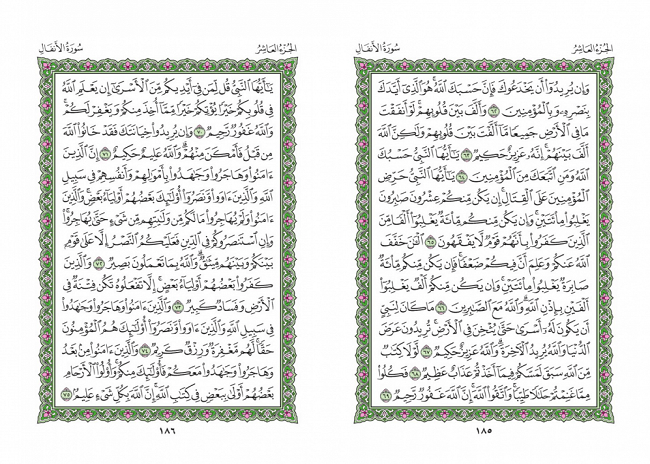 الجزء العاشر
سورة الأنفال
وَإِن يُرِيدُوٓاْ أَن يَخْدَعُوكَ فَإِنَّ حَسْبَكَ ٱللَّهُ هُوَ ٱلَّذِىٓ أَيَّدَكَ
بِنَصْرِهِۦ وَبِٱلْمُؤْمِنِينَ ٦٢ وَأَلَّفَ بَيْنَ قُلُوبِهِمْ لَوْ أَنفَقْتَ
مَا فِى ٱلْأَرْضِ جَمِيعًا مَّآ أَلَّفْتَ بَيْنَ قُلُوبِهِمْ وَلَٰكِنَّ ٱللَّهَ
أَلَّفَ بَيْنَهُمْ إِنَّهُۥ عَزِيزٌ حَكِيمٌ ٦٣ يَٰٓأَيُّهَا ٱلنَّبِىُّ حَسْبُكَ
ٱللَّهُ وَمَنِ ٱتَّبَعَكَ مِنَ ٱلْمُؤْمِنِينَ ٦٤ يَٰٓأَيُّهَا ٱلنَّبِىُّ حَرِّضِ
ٱلْمُؤْمِنِينَ عَلَى ٱلْقِتَالِ إِن يَكُن مِّنكُمْ عِشْرُونَ صَٰبِرُونَ
يَغْلِبُواْ مِاْئَتَيْنِ وَإِن يَكُن مِّنكُم مِّاْئَةٌ يَغْلِبُوٓاْ أَلْفًا مِّنَ
ٱلَّذِينَ كَفَرُواْ بِأَنَّهُمْ قَوْمٌ لَّا يَفْقَهُونَ ٦٥ ٱلْـَٰٔنَ خَفَّفَ
ٱللَّهُ عَنكُمْ وَعَلِمَ أَنَّ فِيكُمْ ضَعْفًا فَإِن يَكُن مِّنكُم مِّاْئَةٌ
صَابِرَةٌ يَغْلِبُواْ مِاْئَتَيْنِ وَإِن يَكُن مِّنكُمْ أَلْفٌ يَغْلِبُوٓاْ
أَلْفَيْنِ بِإِذْنِ ٱللَّهِ وَٱللَّهُ مَعَ ٱلصَّٰبِرِينَ ٦٦ مَا كَانَ لِنَبِىٍّ
أَن يَكُونَ لَهُۥٓ أَسْرَىٰ حَتَّىٰ يُثْخِنَ فِى ٱلْأَرْضِ تُرِيدُونَ عَرَضَ
ٱلدُّنْيَا وَٱللَّهُ يُرِيدُ ٱلْأَخِرَةَ وَٱللَّهُ عَزِيزٌ حَكِيمٌ ٦٧ لَّوْلَا كِتَٰبٌ
مِّنَ ٱللَّهِ سَبَقَ لَمَسَّكُمْ فِيمَآ أَخَذْتُمْ عَذَابٌ عَظِيمٌ ٦٨ فَكُلُواْ
مِمَّا غَنِمْتُمْ حَلَٰلًا طَيِّبًا وَٱتَّقُواْ ٱللَّهَ إِنَّ ٱللَّهَ غَفُورٌ رَّحِيمٌ ٦٩
١٨٥
الجزء العاشر
سورة الأنفال
يَٰٓأَيُّهَا ٱلنَّبِىُّ قُل لِّمَن فِىٓ أَيْدِيكُم مِّنَ ٱلْأَسْرَىٰٓ إِن يَعْلَمِ ٱللَّهُ
فِى قُلُوبِكُمْ خَيْرًا يُؤْتِكُمْ خَيْرًا مِّمَّآ أُخِذَ مِنكُمْ وَيَغْفِرْ لَكُمْ
وَٱللَّهُ غَفُورٌ رَّحِيمٌ ٧٠ وَإِن يُرِيدُواْ خِيَانَتَكَ فَقَدْ خَانُواْ ٱللَّهَ
مِن قَبْلُ فَأَمْكَنَ مِنْهُمْ وَٱللَّهُ عَلِيمٌ حَكِيمٌ ٧١ إِنَّ ٱلَّذِينَ
ءَامَنُواْ وَهَاجَرُواْ وَجَٰهَدُواْ بِأَمْوَٰلِهِمْ وَأَنفُسِهِمْ فِى سَبِيلِ
ٱللَّهِ وَٱلَّذِينَ ءَاوَواْ وَّنَصَرُوٓاْ أُوْلَٰٓئِكَ بَعْضُهُمْ أَوْلِيَآءُ بَعْضٍ وَٱلَّذِينَ
ءَامَنُواْ وَلَمْ يُهَاجِرُواْ مَا لَكُم مِّن وَلَٰيَتِهِم مِّن شَىْءٍ حَتَّىٰ يُهَاجِرُواْ
وَإِنِ ٱسْتَنصَرُوكُمْ فِى ٱلدِّينِ فَعَلَيْكُمُ ٱلنَّصْرُ إِلَّا عَلَىٰ قَوْمٍۭ
بَيْنَكُمْ وَبَيْنَهُم مِّيثَٰقٌ وَٱللَّهُ بِمَا تَعْمَلُونَ بَصِيرٌ ٧٢ وَٱلَّذِينَ
كَفَرُواْ بَعْضُهُمْ أَوْلِيَآءُ بَعْضٍ إِلَّا تَفْعَلُوهُ تَكُن فِتْنَةٌ فِى
ٱلْأَرْضِ وَفَسَادٌ كَبِيرٌ ٧٣ وَٱلَّذِينَ ءَامَنُواْ وَهَاجَرُواْ وَجَٰهَدُواْ
فِى سَبِيلِ ٱللَّهِ وَٱلَّذِينَ ءَاوَواْ وَّنَصَرُوٓاْ أُوْلَٰٓئِكَ هُمُ ٱلْمُؤْمِنُونَ
حَقًّا لَّهُم مَّغْفِرَةٌ وَرِزْقٌ كَرِيمٌ ٧٤ وَٱلَّذِينَ ءَامَنُواْ مِنۢ بَعْدُ
وَهَاجَرُواْ وَجَٰهَدُواْ مَعَكُمْ فَأُوْلَٰٓئِكَ مِنكُمْ وَأُوْلُواْ ٱلْأَرْحَامِ
بَعْضُهُمْ أَوْلَىٰ بِبَعْضٍ فِى كِتَٰبِ ٱللَّهِ إِنَّ ٱللَّهَ بِكُلِّ شَىْءٍ عَلِيمٌۢ ٧٥
١٨٦